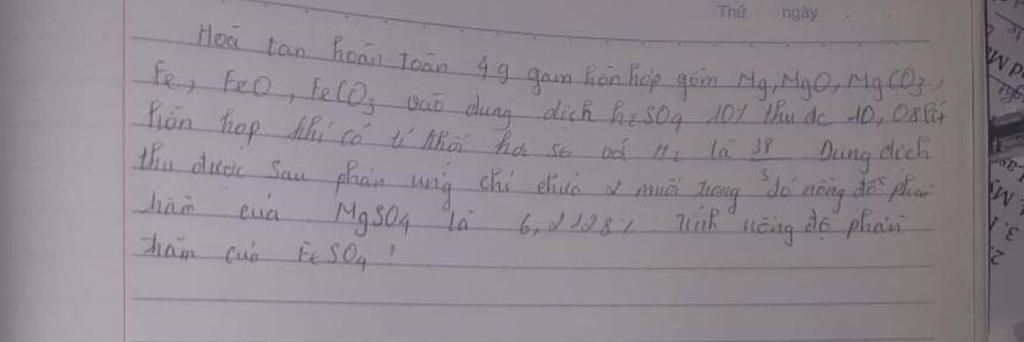 Thứ ngày
Hoà tan hoàn toàn 49 gam hỗn hợp gồm Mg, MgO, MgCO3,
Fe, FeO, FeCO3 vào dung dịch H2SO4 10% thu dc 10,08 lít
hỗn hợp khí có tỉ khối hơi so với H2 là 38/5 Dung dịch
thu được sau phản ứng chỉ chứa 2 muối trong đó nồng độ phần
trăm của MgSO4 là 6,2128% Tính nồng độ phần
trăm của FeSO4?